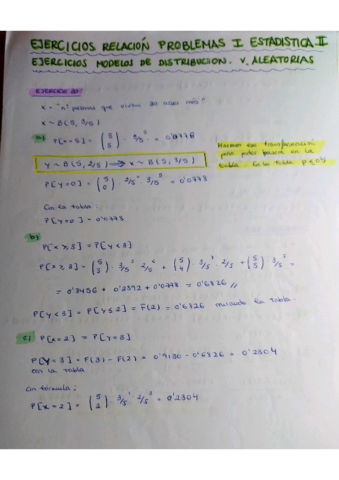 EJERCICIOS RELACIÓN PROBLEMAS I ESTADISTICA II
EJERCICIOS MODELOS DE DISTRIBUCION. V. ALEATORIAS
EJERCICIO 21
x = "nº personas que vivirán 30 años más"
x ~ B(5, 3/5)
a) P[x=5] = (5 5) · 3/5^5 = 0'0778
Hacemos esta transformación
para poder buscar en la
tabla. En la tabla p ≤ 0'5
y ~ B(5, 2/5) → x ~ B(5, 3/5)
P[y=0] = (5 0) · 2/5^0 · 3/5^5 = 0'0778
Con la tabla:
P[y=0] = 0'0778
b)
P[x ≥ 3] = P[y < 3]
P[x ≥ 3] = (5 3) · 3/5^3 · 2/5^2 + (5 4) · 3/5^4 · 2/5 + (5 5) · 3/5^5 =
= 0'3456 + 0'2592 + 0'0778 = 0'6826 //
P[y < 3] = P[y ≤ 2] = F(2) = 0'6826 mirando la tabla.
c) P[x=2] = P[y=3]
P[y=3] = F(3) - F(2) = 0'9130 - 0'6826 = 0'2304
con la tabla
Con fórmula:
P[x=2] = (5 2) · 3/5^2 · 2/5^3 = 0'2304